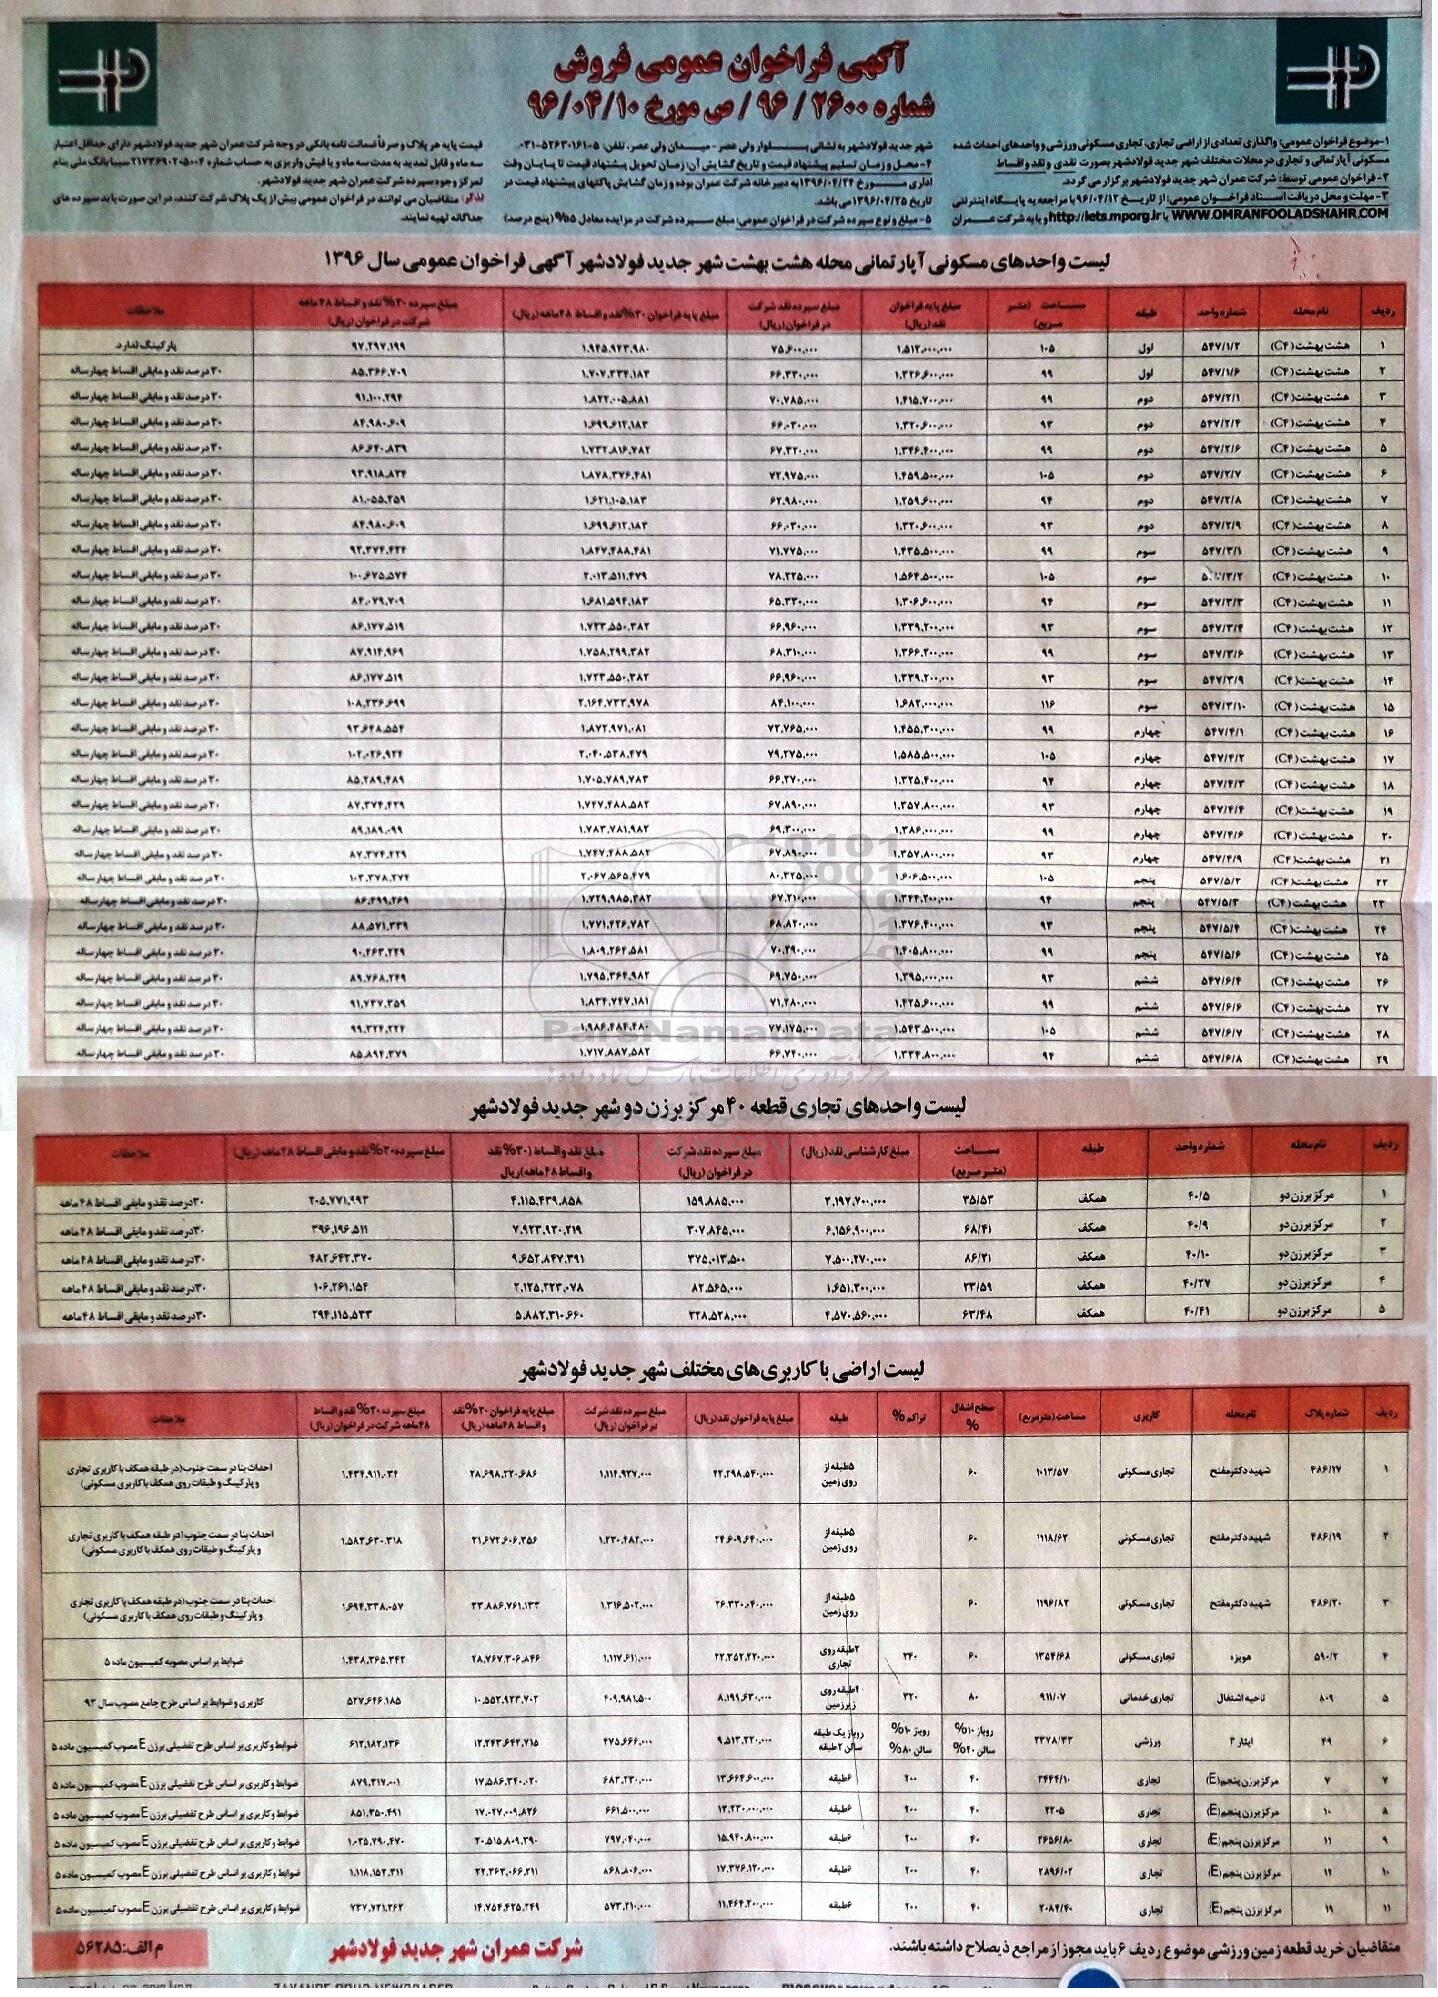 آگهی فراخوان عمومی فروش
شماره ۲۶۰۰ / ۹۶ / ص مورخ ۹۶/۰۴/۱۰
۱-موضوع فراخوان عمومی: واگذاری تعدادی از اراضی تجاری، تجاری مسکونی ورزشی و واحدهای احداث شده
مسکونی آپارتمانی و تجاری در محلات مختلف شهر جدید فولادشهر بصورت نقدی و نقد و اقساط
۲-فراخوان عمومی توسط: شرکت عمران شهر جدید فولادشهر برگزار می گردد.
۳-مهلت و محل دریافت اسناد فراخوان عمومی: از تاریخ ۹۶/۰۴/۱۲ با مراجعه به پایگاه اینترنتی
WWW.OMRANFOOLADSHAHR.COM یا http://iets.mporg.ir و یا به شرکت عمران
شهر جدید فولادشهر به نشانی بلوار ولی عصر - میدان ولی عصر، تلفن: ۵-۰۳۱-۵۲۶۳۰۱۶۱
۴-محل و زمان تسلیم پیشنهاد قیمت و تاریخ گشایش آن: زمان تحویل پیشنهاد قیمت تا پایان وقت
اداری مورخ ۱۳۹۶/۰۴/۲۴ به دبیرخانه شرکت عمران بوده و زمان گشایش پاکتهای پیشنهاد قیمت در
تاریخ ۱۳۹۶/۰۴/۲۵ می باشد.
۵-مبلغ و نوع سپرده شرکت در فراخوان عمومی: مبلغ سپرده شرکت در مزایده معادل ۵% (پنج درصد)
قیمت پایه هر پلاک و صرفاً ضمانت نامه بانکی در وجه شرکت عمران شهر جدید فولادشهر دارای حداقل اعتبار
سه ماه و قابل تمدید به مدت سه ماه و یا فیش واریزی به حساب شماره ۲۱۷۳۶۹۰۲۰۵۰۰۴ سیبا بانک ملی بنام
تمرکز وجوه سپرده شرکت عمران شهر جدید فولادشهر.
تذکر: متقاضیان می توانند در فراخوان عمومی بیش از یک پلاک شرکت کنند، در این صورت باید سپرده های
جداگانه تهیه نمایند.
لیست واحدهای مسکونی آپارتمانی محله هشت بهشت شهر جدید فولادشهر آگهی فراخوان عمومی سال ۱۳۹۶
ردیف نام محله شماره واحد طبقه مساحت (متر مربع) مبلغ پایه فراخوان نقد (ریال) مبلغ سپرده نقد شرکت در فراخوان (ریال) مبلغ پایه فراخوان ۳۰% نقد و اقساط ۴۸ ماهه (ریال) مبلغ سپرده ۳۰% نقد و اقساط ۴۸ ماهه شرکت در فراخوان (ریال) ملاحظات
۱ هشت بهشت (C۴) ۵۴۷/۱/۲ اول ۱۰۵ ۱.۵۱۲.۰۰۰.۰۰۰ ۷۵.۶۰۰.۰۰۰ ۱.۹۴۵.۹۴۳.۹۸۰ ۹۷.۲۹۷.۱۹۹ پارکینگ ندارد.
۲ هشت بهشت (C۴) ۵۴۷/۱/۶ اول ۹۹ ۱.۳۲۶.۶۰۰.۰۰۰ ۶۶.۳۳۰.۰۰۰ ۱.۷۰۷.۳۳۴.۱۸۳ ۸۵.۳۶۶.۷۰۹ ۳۰ درصد نقد و مابقی اقساط چهارساله
۳ هشت بهشت (C۴) ۵۴۷/۲/۱ دوم ۹۹ ۱.۴۱۵.۷۰۰.۰۰۰ ۷۰.۷۸۵.۰۰۰ ۱.۸۲۲.۰۰۵.۸۸۱ ۹۱.۱۰۰.۲۹۴ ۳۰ درصد نقد و مابقی اقساط چهارساله
۴ هشت بهشت (C۴) ۵۴۷/۲/۴ دوم ۹۳ ۱.۳۲۰.۶۰۰.۰۰۰ ۶۶.۰۳۰.۰۰۰ ۱.۶۹۹.۶۱۲.۱۸۳ ۸۴.۹۸۰.۶۰۹ ۳۰ درصد نقد و مابقی اقساط چهارساله
۵ هشت بهشت (C۴) ۵۴۷/۲/۶ دوم ۹۹ ۱.۳۴۶.۴۰۰.۰۰۰ ۶۷.۳۲۰.۰۰۰ ۱.۷۳۲.۸۱۶.۷۸۲ ۸۶.۶۴۰.۸۳۹ ۳۰ درصد نقد و مابقی اقساط چهارساله
۶ هشت بهشت (C۴) ۵۴۷/۲/۷ دوم ۱۰۵ ۱.۴۵۹.۵۰۰.۰۰۰ ۷۲.۹۷۵.۰۰۰ ۱.۸۷۸.۳۷۶.۴۸۱ ۹۳.۹۱۸.۸۲۴ ۳۰ درصد نقد و مابقی اقساط چهارساله
۷ هشت بهشت (C۴) ۵۴۷/۲/۸ دوم ۹۴ ۱.۲۵۹.۶۰۰.۰۰۰ ۶۲.۹۸۰.۰۰۰ ۱.۶۲۱.۱۰۵.۱۸۳ ۸۱.۰۵۵.۲۵۹ ۳۰ درصد نقد و مابقی اقساط چهارساله
۸ هشت بهشت (C۴) ۵۴۷/۲/۹ دوم ۹۳ ۱.۳۲۰.۶۰۰.۰۰۰ ۶۶.۰۳۰.۰۰۰ ۱.۶۹۹.۶۱۲.۱۸۳ ۸۴.۹۸۰.۶۰۹ ۳۰ درصد نقد و مابقی اقساط چهارساله
۹ هشت بهشت (C۴) ۵۴۷/۳/۱ سوم ۹۹ ۱.۴۳۵.۵۰۰.۰۰۰ ۷۱.۷۷۵.۰۰۰ ۱.۸۴۷.۴۸۸.۴۸۱ ۹۲.۳۷۴.۴۲۴ ۳۰ درصد نقد و مابقی اقساط چهارساله
۱۰ هشت بهشت (C۴) ۳/۲ سوم ۱۰۵ ۱.۵۶۴.۵۰۰.۰۰۰ ۷۸.۲۲۵.۰۰۰ ۲.۰۱۳.۵۱۱.۴۷۹ ۱۰۰.۶۷۵.۵۷۴ ۳۰ درصد نقد و مابقی اقساط چهارساله
۱۱ هشت بهشت (C۴) ۵۴۷/۳/۳ سوم ۹۴ ۱.۳۰۶.۶۰۰.۰۰۰ ۶۵.۳۳۰.۰۰۰ ۱.۶۸۱.۵۹۴.۱۸۳ ۸۴.۰۷۹.۷۰۹ ۳۰ درصد نقد و مابقی اقساط چهارساله
۱۲ هشت بهشت (C۴) ۵۴۷/۳/۴ سوم ۹۳ ۱.۳۳۹.۲۰۰.۰۰۰ ۶۶.۹۶۰.۰۰۰ ۱.۷۲۳.۵۵۰.۳۸۲ ۸۶.۱۷۷.۵۱۹ ۳۰ درصد نقد و مابقی اقساط چهارساله
۱۳ هشت بهشت (C۴) ۵۴۷/۳/۶ سوم ۹۹ ۱.۳۶۶.۲۰۰.۰۰۰ ۶۸.۳۱۰.۰۰۰ ۱.۷۵۸.۲۹۹.۳۸۲ ۸۷.۹۱۴.۹۶۹ ۳۰ درصد نقد و مابقی اقساط چهارساله
۱۴ هشت بهشت (C۴) ۵۴۷/۳/۹ سوم ۹۳ ۱.۳۳۹.۲۰۰.۰۰۰ ۶۶.۹۶۰.۰۰۰ ۱.۷۲۳.۵۵۰.۳۸۲ ۸۶.۱۷۷.۵۱۹ ۳۰ درصد نقد و مابقی اقساط چهارساله
۱۵ هشت بهشت (C۴) ۵۴۷/۳/۱۰ سوم ۱۱۶ ۱.۶۸۲.۰۰۰.۰۰۰ ۸۴.۱۰۰.۰۰۰ ۲.۱۶۴.۷۳۳.۹۷۸ ۱۰۸.۲۳۶.۶۹۹ ۳۰ درصد نقد و مابقی اقساط چهارساله
۱۶ هشت بهشت (C۴) ۵۴۷/۴/۱ چهارم ۹۹ ۱.۴۵۵.۳۰۰.۰۰۰ ۷۲.۷۶۵.۰۰۰ ۱.۸۷۲.۹۷۱.۰۸۱ ۹۳.۶۴۸.۵۵۴ ۳۰ درصد نقد و مابقی اقساط چهارساله
۱۷ هشت بهشت (C۴) ۵۴۷/۴/۲ چهارم ۱۰۵ ۱.۵۸۵.۵۰۰.۰۰۰ ۷۹.۲۷۵.۰۰۰ ۲.۰۴۰.۵۳۸.۴۷۹ ۱۰۲.۰۲۶.۹۲۴ ۳۰ درصد نقد و مابقی اقساط چهارساله
۱۸ هشت بهشت (C۴) ۵۴۷/۴/۳ چهارم ۹۴ ۱.۳۲۵.۴۰۰.۰۰۰ ۶۶.۲۷۰.۰۰۰ ۱.۷۰۵.۷۸۹.۷۸۳ ۸۵.۲۸۹.۴۸۹ ۳۰ درصد نقد و مابقی اقساط چهارساله
۱۹ هشت بهشت (C۴) ۵۴۷/۴/۴ چهارم ۹۳ ۱.۳۵۷.۸۰۰.۰۰۰ ۶۷.۸۹۰.۰۰۰ ۱.۷۴۷.۴۸۸.۵۸۲ ۸۷.۳۷۴.۴۲۹ ۳۰ درصد نقد و مابقی اقساط چهارساله
۲۰ هشت بهشت (C۴) ۵۴۷/۴/۶ چهارم ۹۹ ۱.۳۸۶.۰۰۰.۰۰۰ ۶۹.۳۰۰.۰۰۰ ۱.۷۸۳.۷۸۱.۹۸۲ ۸۹.۱۸۹.۰۹۹ ۳۰ درصد نقد و مابقی اقساط چهارساله
۲۱ هشت بهشت (C۴) ۵۴۷/۴/۹ چهارم ۹۳ ۱.۳۵۷.۸۰۰.۰۰۰ ۶۷.۸۹۰.۰۰۰ ۱.۷۴۷.۴۸۸.۵۸۲ ۸۷.۳۷۴.۴۲۹ ۳۰ درصد نقد و مابقی اقساط چهارساله
۲۲ هشت بهشت (C۴) ۵۴۷/۵/۲ پنجم ۱۰۵ ۱.۶۰۶.۵۰۰.۰۰۰ ۸۰.۳۲۵.۰۰۰ ۲.۰۶۷.۵۶۵.۴۷۹ ۱۰۳.۳۷۸.۲۷۴ ۳۰ درصد نقد و مابقی اقساط چهارساله
۲۳ هشت بهشت (C۴) ۵۴۷/۵/۳ پنجم ۹۴ ۱.۳۴۴.۲۰۰.۰۰۰ ۶۷.۲۱۰.۰۰۰ ۱.۷۲۹.۹۸۵.۳۸۲ ۸۶.۴۹۹.۲۶۹ ۳۰ درصد نقد و مابقی اقساط چهارساله
۲۴ هشت بهشت (C۴) ۵۴۷/۵/۴ پنجم ۹۳ ۱.۳۷۶.۴۰۰.۰۰۰ ۶۸.۸۲۰.۰۰۰ ۱.۷۷۱.۴۲۶.۷۸۲ ۸۸.۵۷۱.۳۳۹ ۳۰ درصد نقد و مابقی اقساط چهارساله
۲۵ هشت بهشت (C۴) ۵۴۷/۵/۶ پنجم ۹۹ ۱.۴۰۵.۸۰۰.۰۰۰ ۷۰.۲۹۰.۰۰۰ ۱.۸۰۹.۲۶۴.۵۸۱ ۹۰.۴۶۳.۲۲۹ ۳۰ درصد نقد و مابقی اقساط چهارساله
۲۶ هشت بهشت (C۴) ۵۴۷/۶/۴ ششم ۹۳ ۱.۳۹۵.۰۰۰.۰۰۰ ۶۹.۷۵۰.۰۰۰ ۱.۷۹۵.۳۶۴.۹۸۲ ۸۹.۷۶۸.۲۴۹ ۳۰ درصد نقد و مابقی اقساط چهارساله
۲۷ هشت بهشت (C۴) ۵۴۷/۶/۶ ششم ۹۹ ۱.۴۲۵.۶۰۰.۰۰۰ ۷۱.۲۸۰.۰۰۰ ۱.۸۳۴.۷۴۷.۱۸۱ ۹۱.۷۳۷.۳۵۹ ۳۰ درصد نقد و مابقی اقساط چهارساله
۲۸ هشت بهشت (C۴) ۵۴۷/۶/۷ ششم ۱۰۵ ۱.۵۴۳.۵۰۰.۰۰۰ ۷۷.۱۷۵.۰۰۰ ۱.۹۸۶.۴۸۴.۴۸۰ ۹۹.۳۲۴.۲۲۴ ۳۰ درصد نقد و مابقی اقساط چهارساله
۲۹ هشت بهشت (C۴) ۵۴۷/۶/۸ ششم ۹۴ ۱.۳۳۴.۸۰۰.۰۰۰ ۶۶.۷۴۰.۰۰۰ ۱.۷۱۷.۸۸۷.۵۸۲ ۸۵.۸۹۴.۳۷۹ ۳۰ درصد نقد و مابقی اقساط چهارساله
لیست واحدهای تجاری قطعه ۴۰ مرکز برزن دو شهر جدید فولادشهر
ردیف نام محله شماره واحد طبقه مساحت (متر مربع) مبلغ کارشناسی نقد (ریال) مبلغ سپرده نقد شرکت در فراخوان (ریال) مبلغ نقد و اقساط (۳۰% نقد و اقساط ۴۸ ماهه) ریال مبلغ سپرده ۳۰% نقد و مابقی اقساط ۴۸ ماهه (ریال) ملاحظات
۱ مرکز برزن دو ۴۰/۵ همکف ۳۵/۵۳ ۳.۱۹۷.۷۰۰.۰۰۰ ۱۵۹.۸۸۵.۰۰۰ ۴.۱۱۵.۴۳۹.۸۵۸ ۲۰۵.۷۷۱.۹۹۳ ۳۰ درصد نقد و مابقی اقساط ۴۸ ماهه
۲ مرکز برزن دو ۴۰/۹ همکف ۶۸/۴۱ ۶.۱۵۶.۹۰۰.۰۰۰ ۳۰۷.۸۴۵.۰۰۰ ۷.۹۲۳.۹۲۰.۲۱۹ ۳۹۶.۱۹۶.۵۱۱ ۳۰ درصد نقد و مابقی اقساط ۴۸ ماهه
۳ مرکز برزن دو ۴۰/۱۰ همکف ۸۶/۲۱ ۷.۵۰۰.۲۷۰.۰۰۰ ۳۷۵.۰۱۳.۵۰۰ ۹.۶۵۲.۸۴۷.۳۹۱ ۴۸۲.۶۴۲.۳۷۰ ۳۰ درصد نقد و مابقی اقساط ۴۸ ماهه
۴ مرکز برزن دو ۴۰/۲۷ همکف ۲۳/۵۹ ۱.۶۵۱.۳۰۰.۰۰۰ ۸۲.۵۶۵.۰۰۰ ۲.۱۲۵.۲۲۳.۰۷۸ ۱۰۶.۲۶۱.۱۵۴ ۳۰ درصد نقد و مابقی اقساط ۴۸ ماهه
۵ مرکز برزن دو ۴۰/۴۱ همکف ۶۳/۴۸ ۴.۵۷۰.۵۶۰.۰۰۰ ۲۲۸.۵۲۸.۰۰۰ ۵.۸۸۲.۳۱۰.۶۶۰ ۲۹۴.۱۱۵.۵۳۳ ۳۰ درصد نقد و مابقی اقساط ۴۸ ماهه
لیست اراضی با کاربری های مختلف شهر جدید فولادشهر
ردیف شماره پلاک نام محله کاربری مساحت (مترمربع) سطح اشغال % تراکم % طبقه مبلغ پایه فراخوان نقد (ریال) مبلغ سپرده نقد شرکت در فراخوان (ریال) مبلغ پایه فراخوان ۳۰% نقد و اقساط ۴۸ ماهه (ریال) مبلغ سپرده ۳۰% نقد و اقساط ۴۸ ماهه شرکت در فراخوان (ریال) ملاحظات
۱ ۴۸۶/۱۷ شهید دکتر مفتح تجاری مسکونی ۱۰۱۳/۵۷ ۶۰ ۵ طبقه از روی زمین ۲۲.۲۹۸.۵۴۰.۰۰۰ ۱.۱۱۴.۹۲۷.۰۰۰ ۲۸.۶۹۸.۲۲۰.۶۸۶ ۱.۴۳۴.۹۱۱.۰۳۴ احداث بنا در سمت جنوب (در طبقه همکف با کاربری تجاری و پارکینگ و طبقات روی همکف با کاربری مسکونی)
۲ ۴۸۶/۱۹ شهید دکتر مفتح تجاری مسکونی ۱۱۱۸/۶۲ ۶۰ ۵ طبقه از روی زمین ۲۴.۶۰۹.۶۴۰.۰۰۰ ۱.۲۳۰.۴۸۲.۰۰۰ ۳۱.۶۷۲.۶۰۶.۳۵۶ ۱.۵۸۳.۶۳۰.۳۱۸ احداث بنا در سمت جنوب (در طبقه همکف با کاربری تجاری و پارکینگ و طبقات روی همکف با کاربری مسکونی)
۳ ۴۸۶/۲۰ شهید دکتر مفتح تجاری مسکونی ۱۱۹۶/۸۲ ۶۰ ۵ طبقه از روی زمین ۲۶.۳۳۰.۰۴۰.۰۰۰ ۱.۳۱۶.۵۰۲.۰۰۰ ۳۳.۸۸۶.۷۶۱.۱۳۳ ۱.۶۹۴.۳۳۸.۰۵۷ احداث بنا در سمت جنوب (در طبقه همکف با کاربری تجاری و پارکینگ و طبقات روی همکف با کاربری مسکونی)
۴ ۵۹۰/۲ هویزه تجاری مسکونی ۱۳۵۴/۶۸ ۶۰ ۲۴۰ ۲ طبقه روی تجاری ۲۲.۳۵۲.۲۲۰.۰۰۰ ۱.۱۱۷.۶۱۱.۰۰۰ ۲۸.۷۶۷.۳۰۶.۸۴۶ ۱.۴۳۸.۳۶۵.۳۴۲ ضوابط بر اساس مصوبه کمیسیون ماده ۵
۵ ۸۰۹ ناحیه اشتغال تجاری خدماتی ۹۱۱/۰۷ ۸۰ ۳۲۰ ۴ طبقه روی زیرزمین ۸.۱۹۹.۶۳۰.۰۰۰ ۴۰۹.۹۸۱.۵۰۰ ۱۰.۵۵۲.۹۲۳.۷۰۲ ۵۲۷.۶۴۶.۱۸۵ کاربری و ضوابط بر اساس طرح جامع مصوب سال ۹۳
۶ ۴۹ ایثار ۳ ورزشی ۲۳۷۸/۳۳ روباز ۱۰% سالن ۴۰% روباز ۱۰% سالن ۸۰% روباز یک طبقه سالن ۲ طبقه ۹.۵۱۳.۳۲۰.۰۰۰ ۴۷۵.۶۶۶.۰۰۰ ۱۲.۲۴۳.۶۴۲.۷۱۵ ۶۱۲.۱۸۲.۱۳۶ ضوابط و کاربری بر اساس طرح تفضیلی برزن E مصوب کمیسیون ماده ۵
۷ ۷ مرکز برزن پنجم (E) تجاری ۳۴۴۴/۱۰ ۴۰ ۲۰۰ ۶ طبقه ۱۳.۶۶۴.۶۰۰.۰۰۰ ۶۸۳.۲۳۰.۰۰۰ ۱۷.۵۸۶.۳۴۰.۰۲۰ ۸۷۹.۳۱۷.۰۰۱ ضوابط و کاربری بر اساس طرح تفضیلی برزن E مصوب کمیسیون ماده ۵
۸ ۱۰ مرکز برزن پنجم (E) تجاری ۲۲۰۵ ۴۰ ۲۰۰ ۶ طبقه ۱۳.۲۳۰.۰۰۰.۰۰۰ ۶۶۱.۵۰۰.۰۰۰ ۱۷.۰۲۷.۰۰۹.۸۲۶ ۸۵۱.۳۵۰.۴۹۱ ضوابط و کاربری بر اساس طرح تفضیلی برزن E مصوب کمیسیون ماده ۵
۹ ۱۱ مرکز برزن پنجم (E) تجاری ۲۶۵۶/۸۰ ۴۰ ۲۰۰ ۶ طبقه ۱۵.۹۴۰.۸۰۰.۰۰۰ ۷۹۷.۰۴۰.۰۰۰ ۲۰.۵۱۵.۸۰۹.۳۹۰ ۱.۰۲۵.۷۹۰.۴۷۰ ضوابط و کاربری بر اساس طرح تفضیلی برزن E مصوب کمیسیون ماده ۵
۱۰ ۱۲ مرکز برزن پنجم (E) تجاری ۲۸۹۶/۰۲ ۴۰ ۲۰۰ ۶ طبقه ۱۷.۳۷۶.۱۲۰.۰۰۰ ۸۶۸.۸۰۶.۰۰۰ ۲۲.۳۶۳.۰۶۶.۲۱۱ ۱.۱۱۸.۱۵۳.۳۱۱ ضوابط و کاربری بر اساس طرح تفضیلی برزن E مصوب کمیسیون ماده ۵
۱۱ ۱۹ مرکز برزن پنجم (E) تجاری ۲۰۸۴/۴۰ ۴۰ ۲۰۰ ۶ طبقه ۱۱.۴۶۴.۲۰۰.۰۰۰ ۵۷۳.۲۱۰.۰۰۰ ۱۴.۷۵۴.۴۲۵.۲۴۹ ۷۳۷.۷۲۱.۲۶۲ ضوابط و کاربری بر اساس طرح تفضیلی برزن E مصوب کمیسیون ماده ۵
متقاضیان خرید قطعه زمین ورزشی موضوع ردیف ۶ باید مجوز از مراجع ذیصلاح داشته باشند.
شرکت عمران شهر جدید فولادشهر
م الف: ۵۶۲۸۵